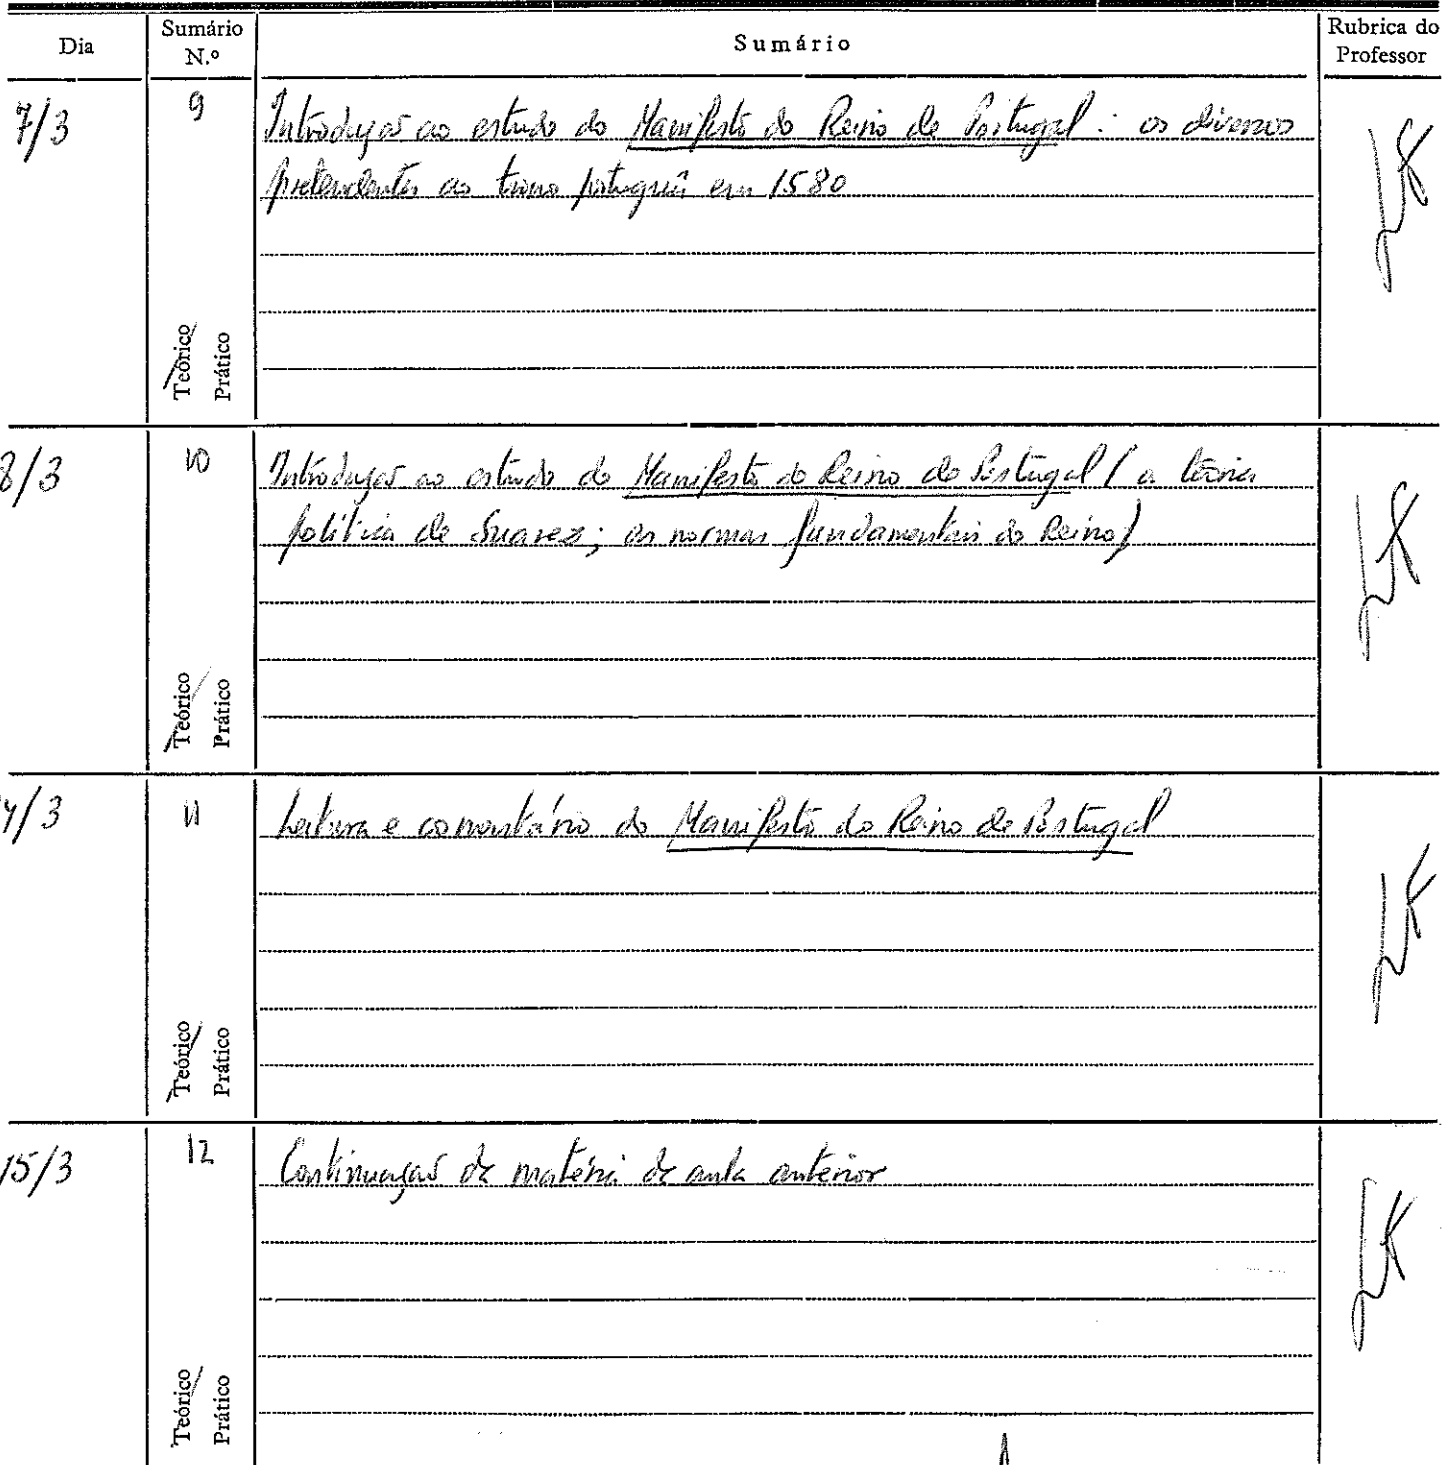 Dia
Sumário
N.º
Sumário
Rubrica do
Professor
7/3
9
Introdução ao estudo do Manifesto do Reino de Portugal: os diversos
pretendentes ao trono português em 1580
Teórico
Prático
8/3
10
Introdução ao estudo do Manifesto do Reino de Portugal (a teoria
política de Suarez; as normas fundamentais do Reino)
Teórico
Prático
4/3
11
Leitura e comentário do Manifesto do Reino de Portugal
Teórico
Prático
15/3
12
Continuação da matéria da aula anterior
Teórico
Prático